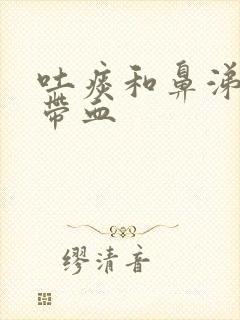 吐痰和鼻涕
带血
缪清音